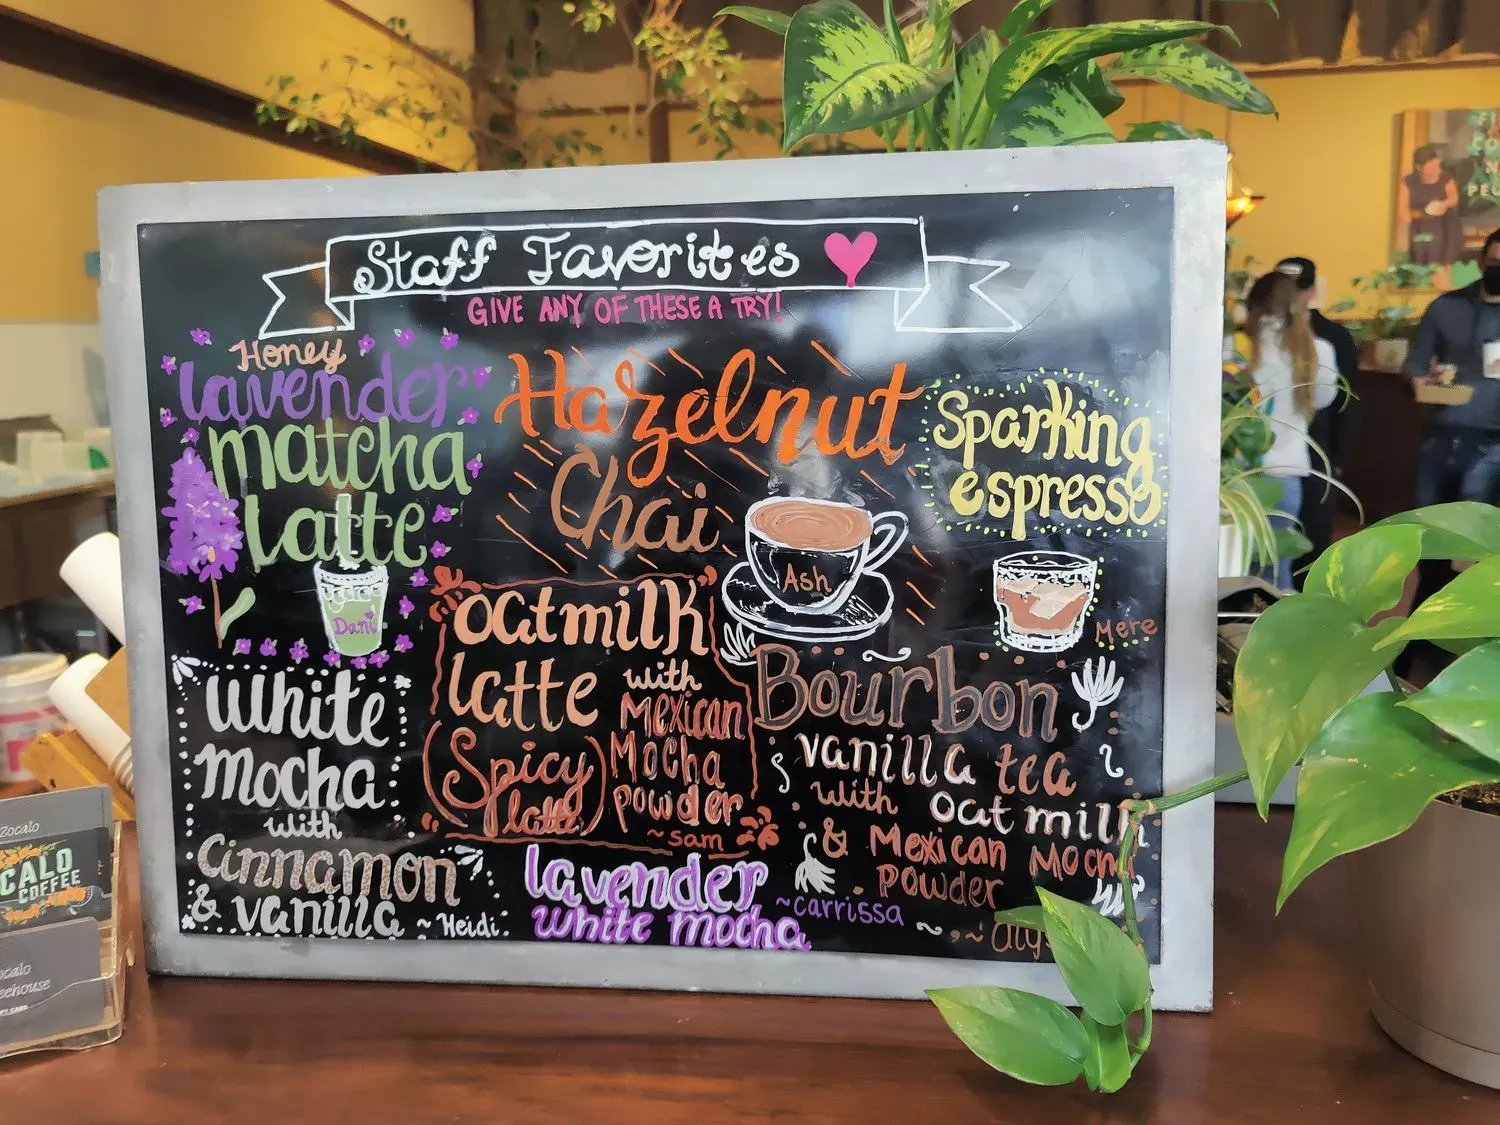 Staff Favorites
GIVE ANY OF THESE A TRY!
Honey
lavender
matcha
latte
Dani
Hazelnut
Chai
Ash
Sparking
espresso
Mere
White
mocha
with
Cinnamon
& vanilla ~ Heidi
oatmilk
latte with
Mexican
(Spicy latte) Mocha
powder
~sam
Bourbon
vanilla tea
with oat milk
& Mexican Mocha
powder
lavender
white mocha
~carrissa
Zocalo
CALO
COFFEE